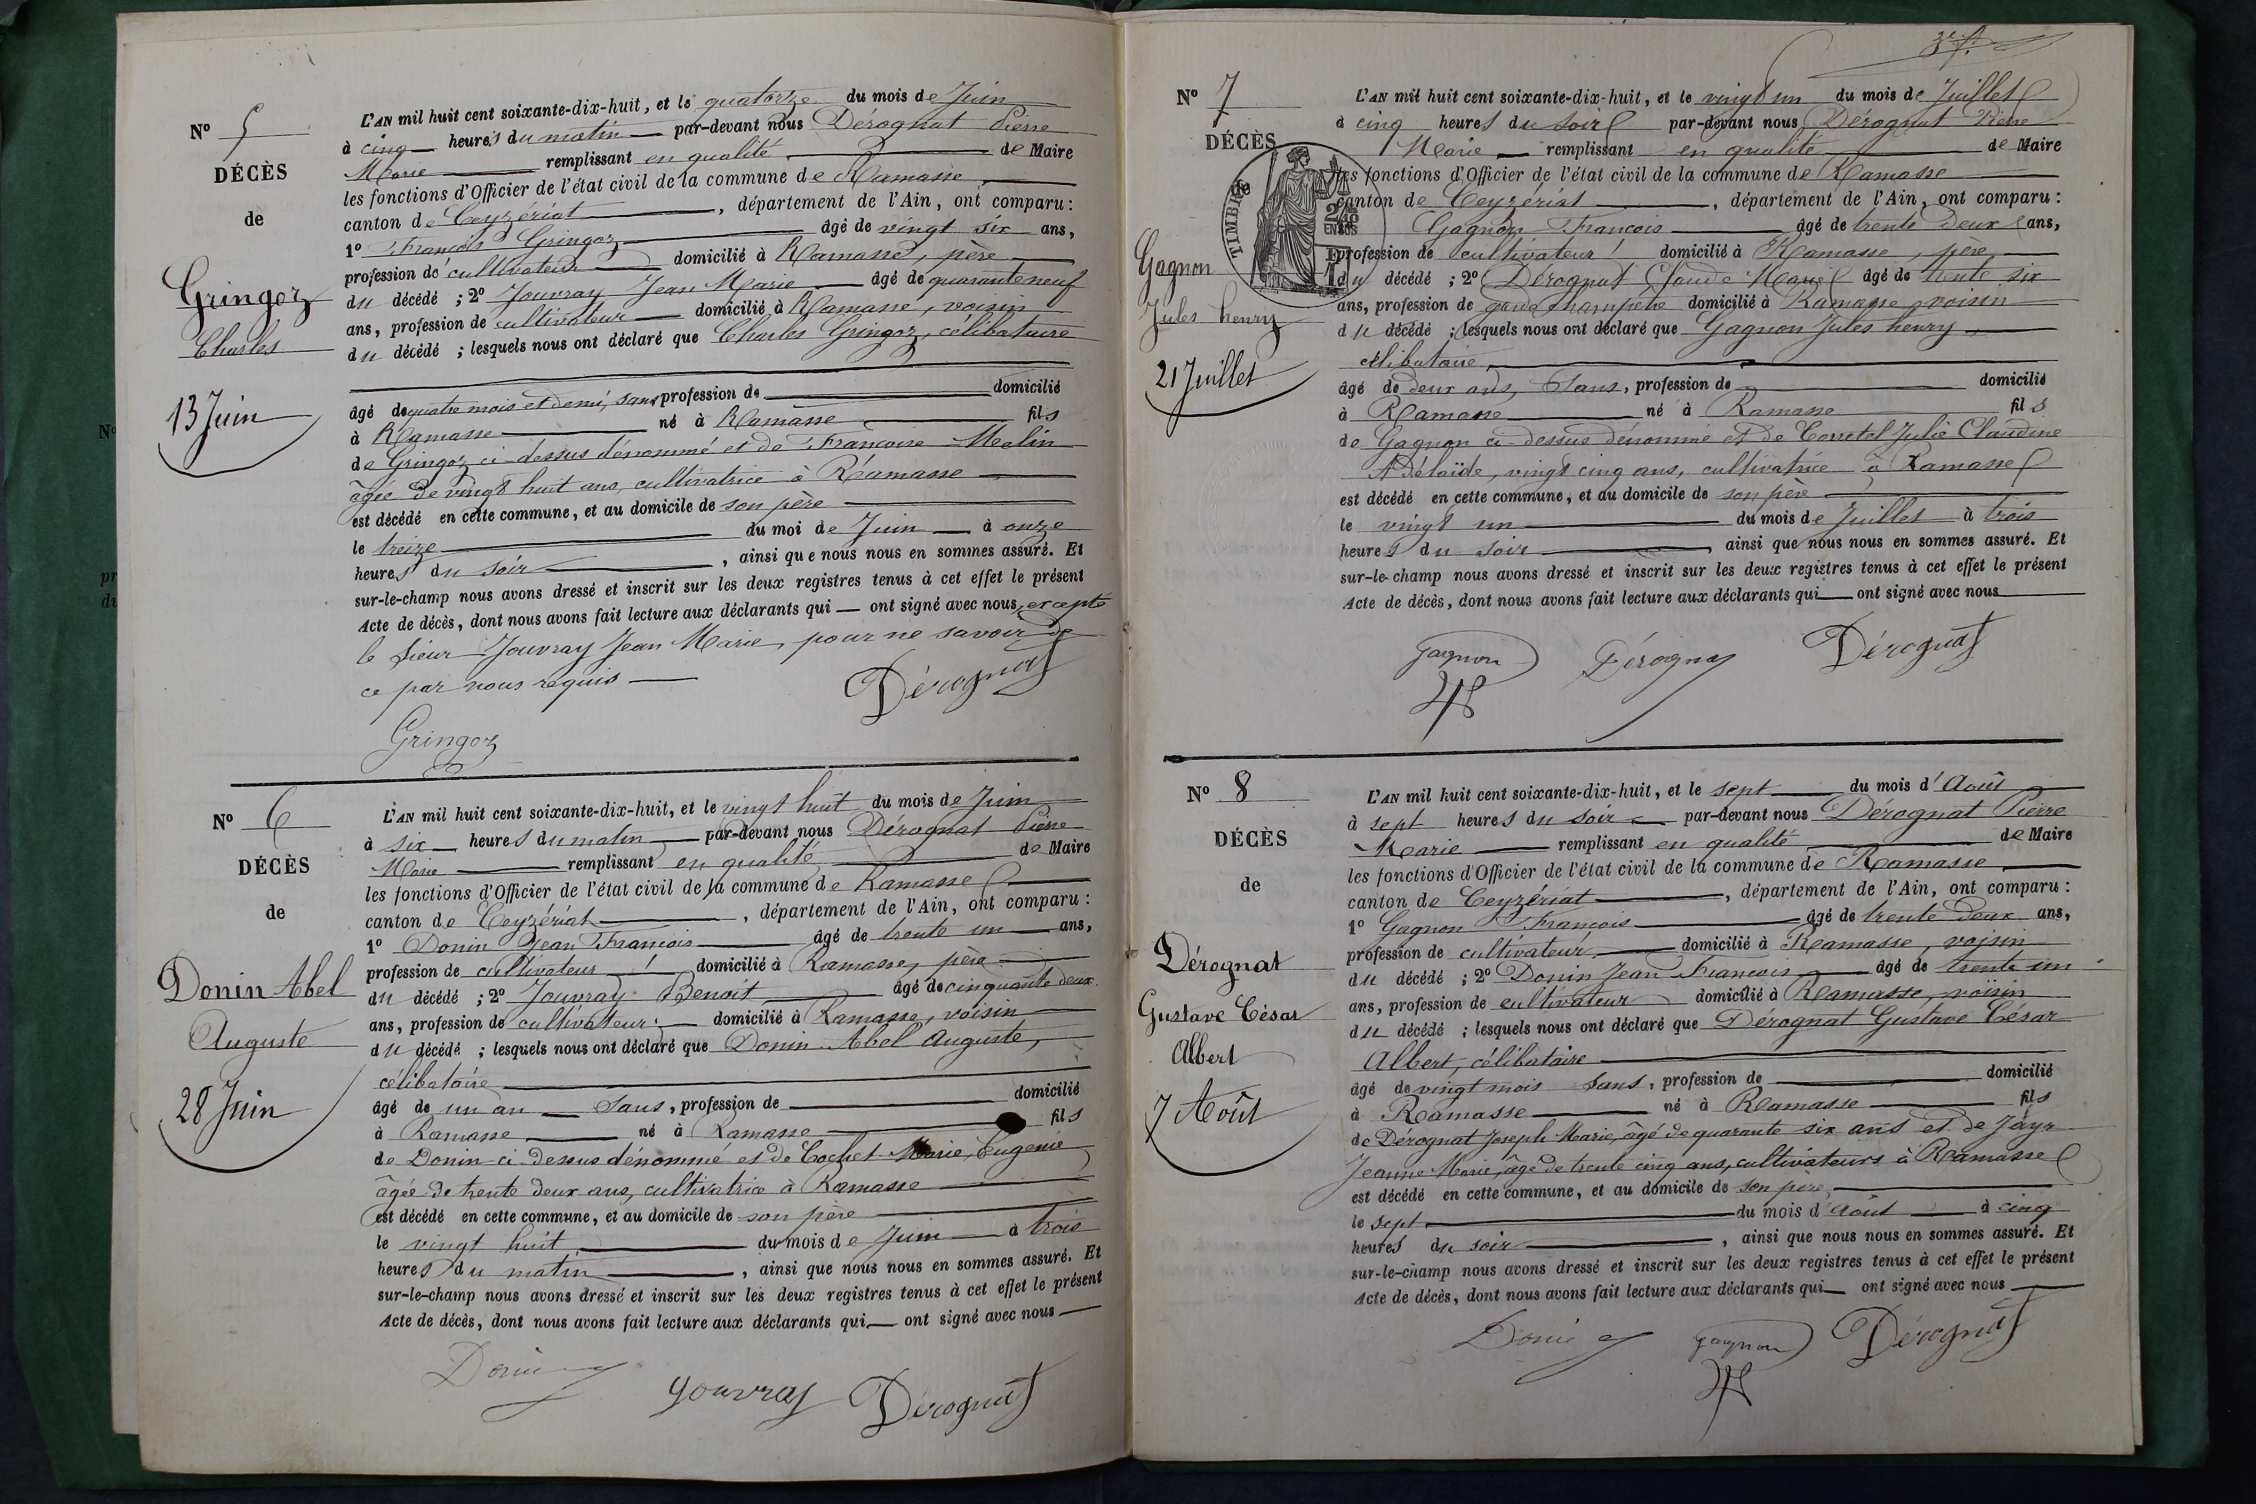 N° 5
DÉCÈS
de
Gringoz
Charles
13 Juin
L'AN mil huit cent soixante-dix-huit, et le quatorze du mois de Juin
à cinq heures du matin par-devant nous Dérognat Pierre
Marie remplissant en qualité de Maire
les fonctions d'Officier de l'état civil de la commune de Ramasse
canton de Ceyzériat, département de l'Ain, ont comparu :
1° François Gringoz âgé de vingt six ans,
profession de cultivateur domicilié à Ramasse, père
du décédé ; 2° Jouvray Jean Marie âgé de quarante neuf
ans, profession de cultivateur domicilié à Ramasse, voisin
du décédé ; lesquels nous ont déclaré que Charles Gringoz, célibataire
âgé de quatre mois et demi, sans profession de domicilié
à Ramasse né à Ramasse fils
de Gringoz ci-dessus dénommé et de Françoise Melin
âgée de vingt huit ans, cultivatrice à Ramasse
est décédé en cette commune, et au domicile de son père
le treize du moi de Juin à onze
heures du soir, ainsi que nous nous en sommes assuré. Et
sur-le-champ nous avons dressé et inscrit sur les deux registres tenus à cet effet le présent
Acte de décès, dont nous avons fait lecture aux déclarants qui ont signé avec nous, excepté
le sieur Jouvray Jean Marie, pour ne savoir de
ce par nous requis
Dérognat
Gringoz
N° 6
DÉCÈS
de
Donin Abel
Auguste
28 Juin
L'AN mil huit cent soixante-dix-huit, et le vingt huit du mois de Juin
à six heures du matin par-devant nous Dérognat Pierre
Marie remplissant en qualité de Maire
les fonctions d'Officier de l'état civil de la commune de Ramasse
canton de Ceyzériat, département de l'Ain, ont comparu :
1° Donin Jean François âgé de trente un ans,
profession de cultivateur domicilié à Ramasse, père
du décédé ; 2° Jouvray Benoit âgé de cinquante deux
ans, profession de cultivateur domicilié à Ramasse, voisin
du décédé ; lesquels nous ont déclaré que Donin Abel Auguste,
célibataire
âgé de un an sans, profession de domicilié
à Ramasse né à Ramasse fils
de Donin ci-dessus dénommé et de Cochet Marie Eugenie
âgée de trente deux ans, cultivatrice à Ramasse
est décédé en cette commune, et au domicile de son père
le vingt huit du mois de Juin à trois
heures du matin, ainsi que nous nous en sommes assuré. Et
sur-le-champ nous avons dressé et inscrit sur les deux registres tenus à cet effet le présent
Acte de décès, dont nous avons fait lecture aux déclarants qui ont signé avec nous
Donin Jouvray Dérognat
N° 7
DÉCÈS
TIMBRE de
Gagnon
Jules henry
21 Juillet
L'AN mil huit cent soixante-dix-huit, et le vingt un du mois de Juillet
à cinq heures du soir par-devant nous Dérognat Pierre
Marie remplissant en qualité de Maire
les fonctions d'Officier de l'état civil de la commune de Ramasse
canton de Ceyzériat, département de l'Ain, ont comparu :
Gagnon François âgé de trente deux ans,
profession de cultivateur domicilié à Ramasse, père
du décédé ; 2° Dérognat Claude Marie âgé de trente six
ans, profession de garde champêtre domicilié à Ramasse, voisin
du décédé ; lesquels nous ont déclaré que Gagnon Jules henry,
célibataire,
âgé de deux ans, sans, profession de domicilié
à Ramasse né à Ramasse fils
de Gagnon ci-dessus dénommé et de Julie Claudine
Adélaïde, vingt cinq ans, cultivatrice à Ramasse
est décédé en cette commune, et au domicile de son père
le vingt un du mois de Juillet à trois
heures du soir, ainsi que nous nous en sommes assuré. Et
sur-le-champ nous avons dressé et inscrit sur les deux registres tenus à cet effet le présent
Acte de décès, dont nous avons fait lecture aux déclarants qui ont signé avec nous
Gagnon Dérognat Dérognat
N° 8
DÉCÈS
de
Dérognat
Gustave César
Albert
7 Août
L'AN mil huit cent soixante-dix-huit, et le sept du mois d'Août
à sept heures du soir par-devant nous Dérognat Pierre
Marie remplissant en qualité de Maire
les fonctions d'Officier de l'état civil de la commune de Ramasse
canton de Ceyzériat, département de l'Ain, ont comparu :
1° Gagnon François âgé de trente deux ans,
profession de cultivateur domicilié à Ramasse, voisin
du décédé ; 2° Donin Jean François âgé de trente un
ans, profession de cultivateur domicilié à Ramasse, voisin
du décédé ; lesquels nous ont déclaré que Dérognat Gustave César
Albert, célibataire
âgé de vingt mois sans, profession de domicilié
à Ramasse né à Ramasse fils
de Dérognat Joseph Marie, âgé de quarante six ans et de Jayr
Jeanne Marie, âgé de trente cinq ans, cultivateurs à Ramasse
est décédé en cette commune, et au domicile de son père,
le sept du mois d'août à cinq
heures du soir, ainsi que nous nous en sommes assuré. Et
sur-le-champ nous avons dressé et inscrit sur les deux registres tenus à cet effet le présent
Acte de décès, dont nous avons fait lecture aux déclarants qui ont signé avec nous
Donin Gagnon Dérognat